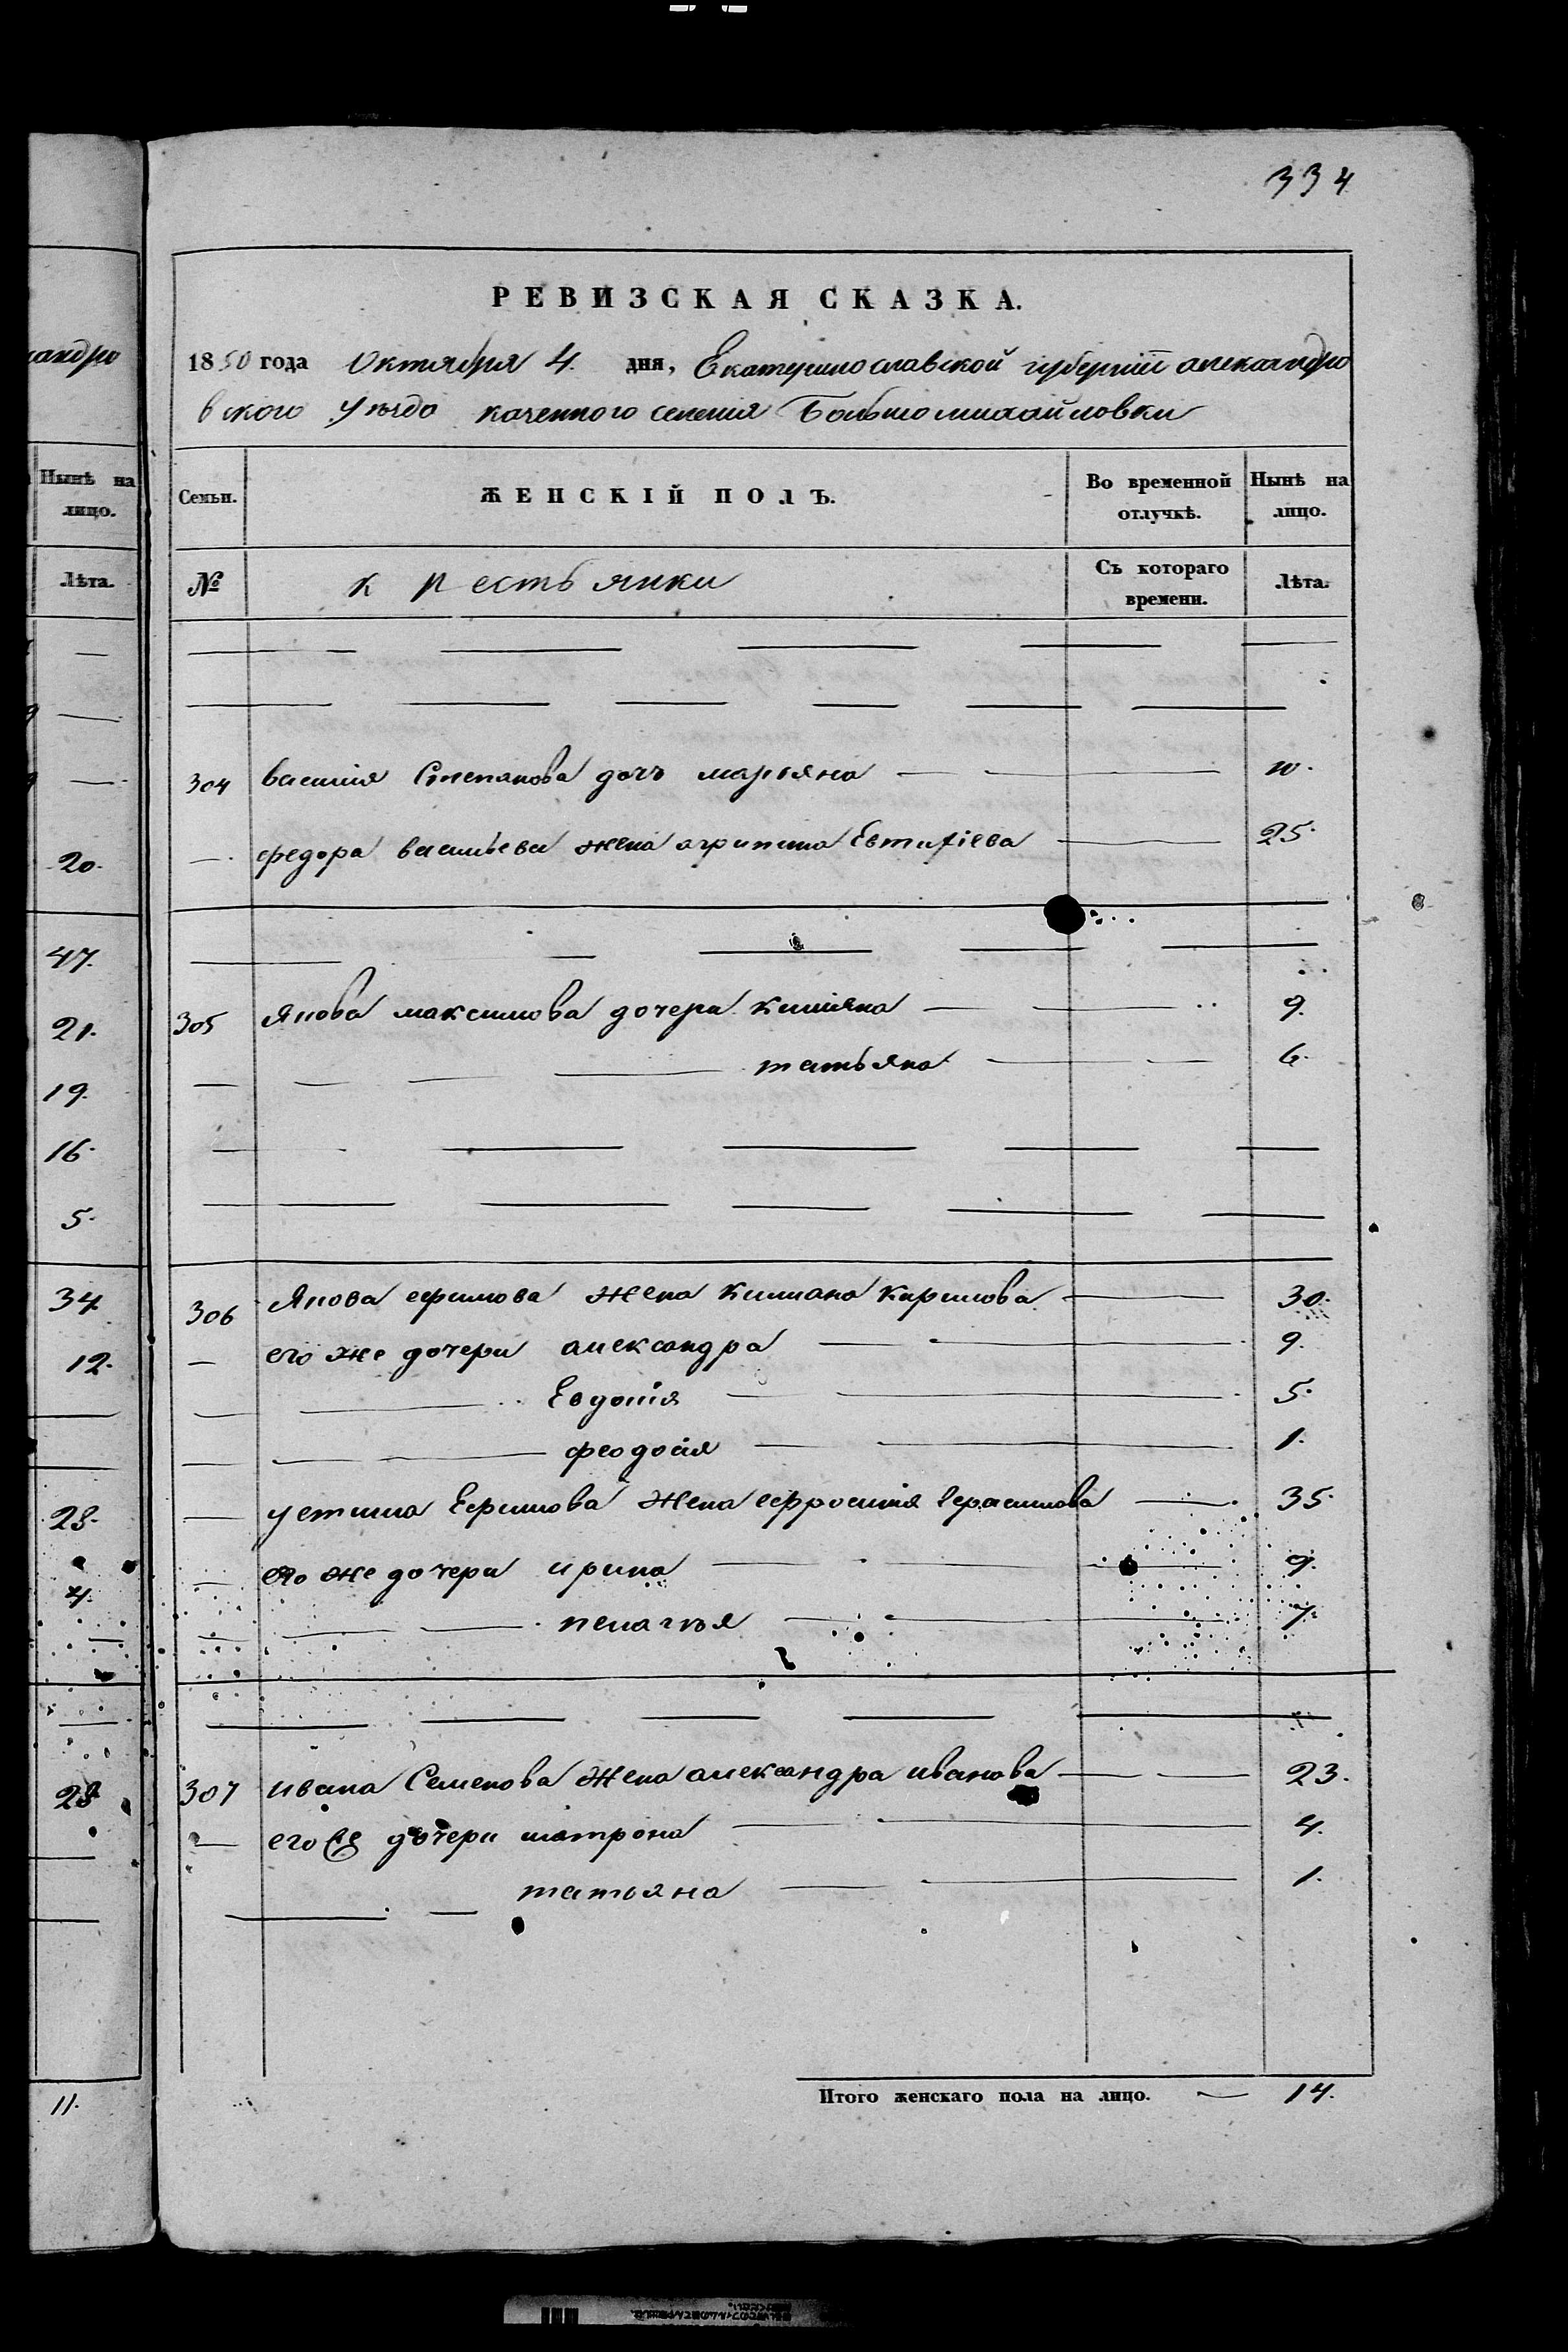 334
РЕВИЗСКАЯ СКАЗКА.
1850 года Октября 4. дня, Екатеринославской губерніи александро
вского уѣзда казенного селенія Большомихайловки
Семьи.
ЖЕНСКІЙ ПОЛЪ.
Во временной отлучкѣ.
Нынѣ на лицо.
№
крестьянки
Съ котораго времени.
Лѣта.
304 василия Степанова дочь марьяна 10.
федора васильева жена агрипина Евтифіева 25.
305 якова максимова дочери килияна 9.
татьяна 6.
306 Якова ефимова жена килиана Кирилова 30.
его же дочери александра 9.
Евдокія 5.
феодосія 1.
устина Ефимова жена ефросинія Герасимова 35.
его же дочери ирина 9.
пелагъя 7.
307 ивана Семенова жена александра иванова 23.
его дочери матрона 4.
татьяна 1.
Итого женскаго пола на лицо. 14.
андро
Нынѣ на лицо.
Лѣта.
20.
47.
21.
19.
16.
5.
34.
12.
28.
4.
28
11.